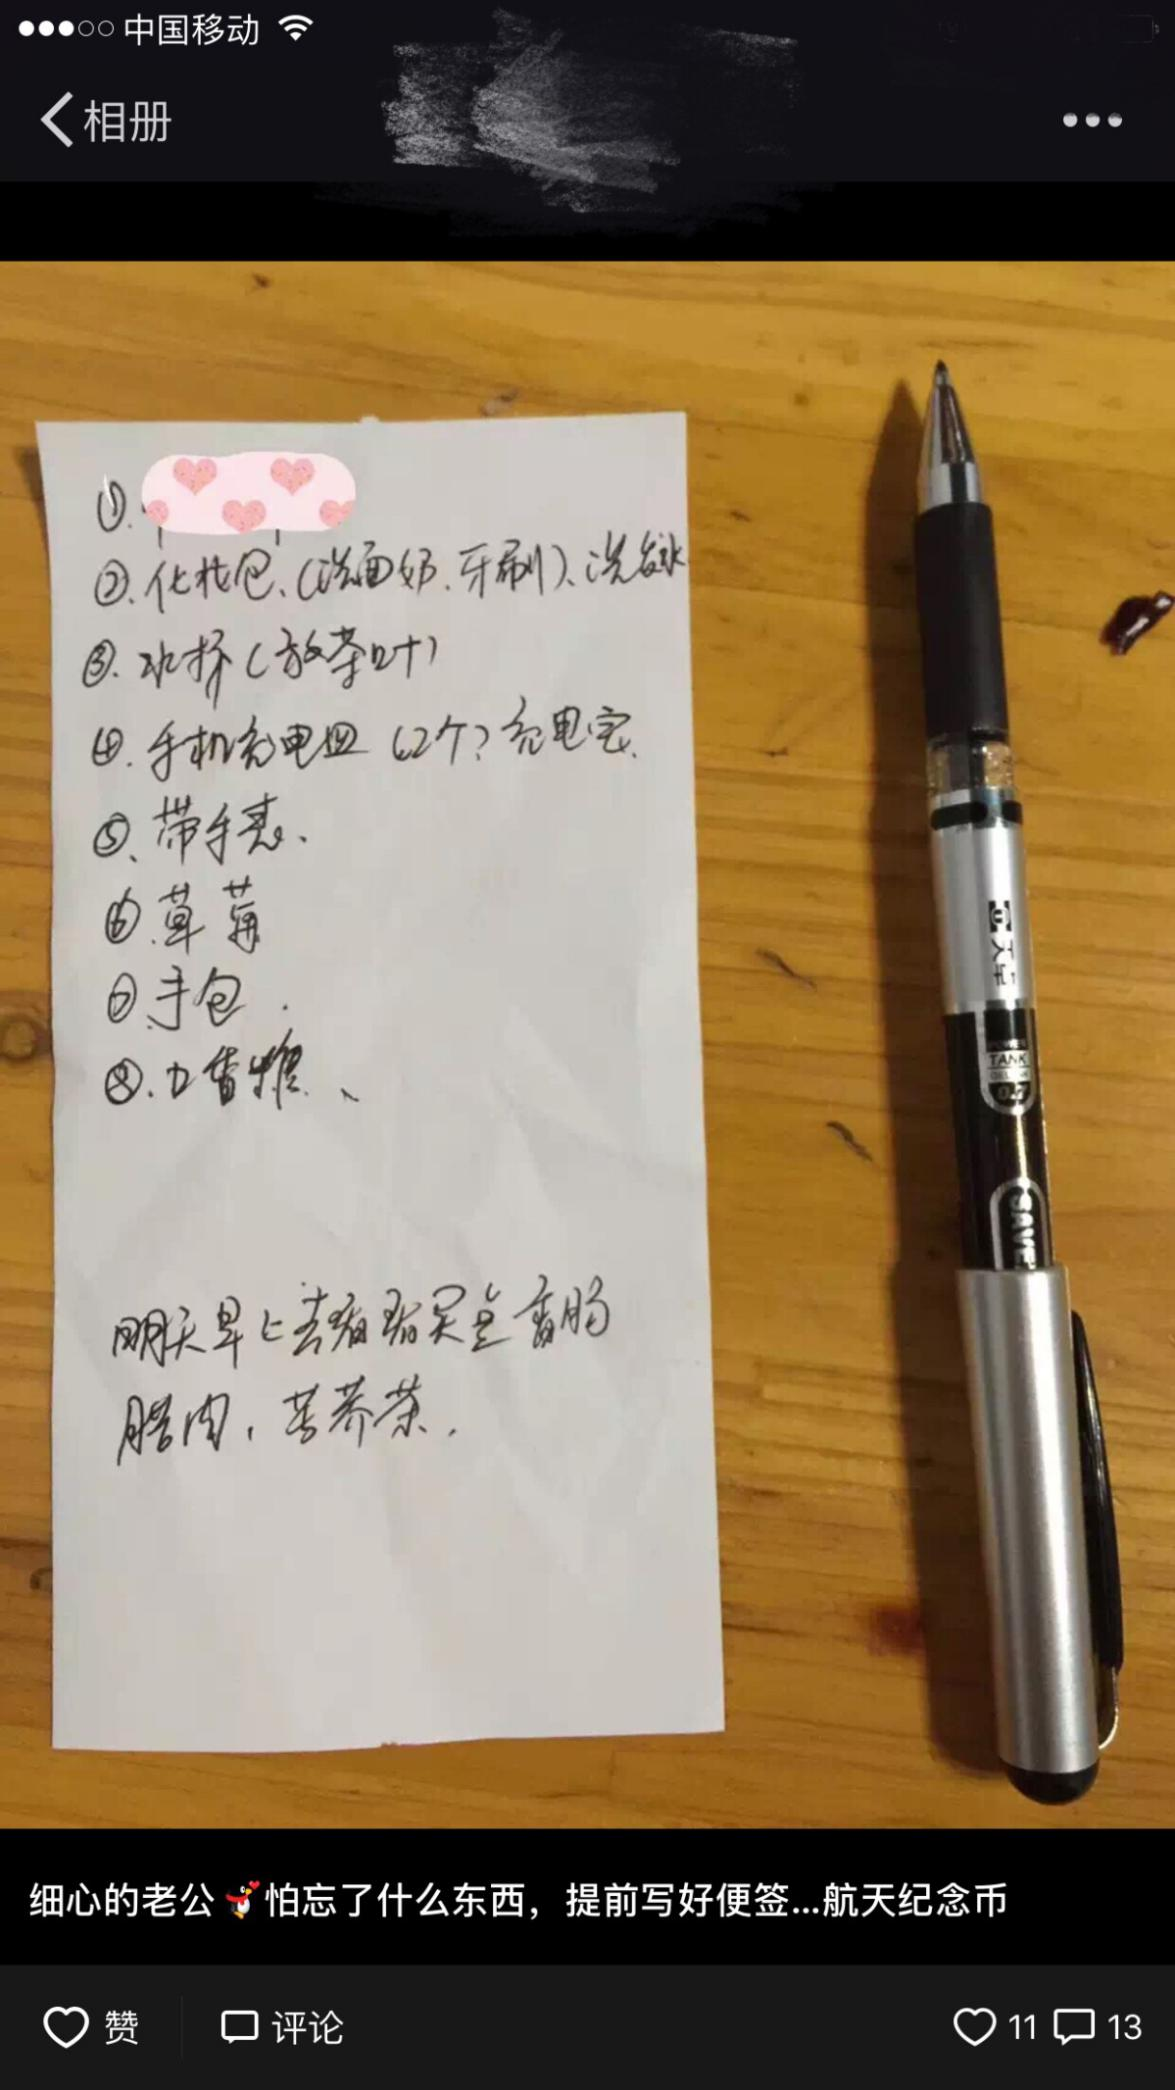 中国移动
相册
①.
②.化妆包、(洗面奶.牙刷)、洗发水
③.水杯(放茶叶)
④.手机充电器(2个)充电宝.
⑤.带手表.
⑥.草莓
⑦.手包.
⑧.口香糖、
明天早上去看看买点香肠
腊肉,苦荞茶.
天卓
TANK
0.7
SAVE
细心的老公怕忘了什么东西，提前写好便签...航天纪念币
赞 评论 11 13